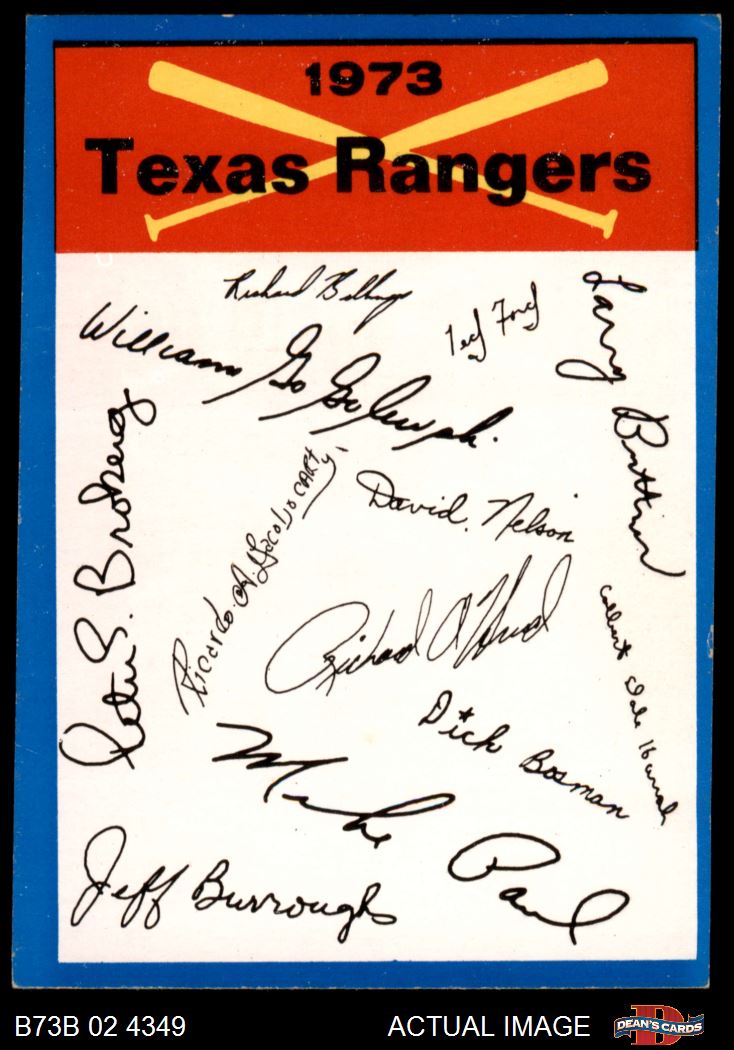 1973
Texas Rangers
Richard Billings
Ted Ford
Larry Biittner
William Gogolewski
Peter S. Broberg
Ricardo. A. Jacobo CARTY
David. Nelson
Richard A
Dick Bosman
Mike Paul
Jeff Burroughs
B73B 02 4349
ACTUAL IMAGE
D
DEAN'S CARDS